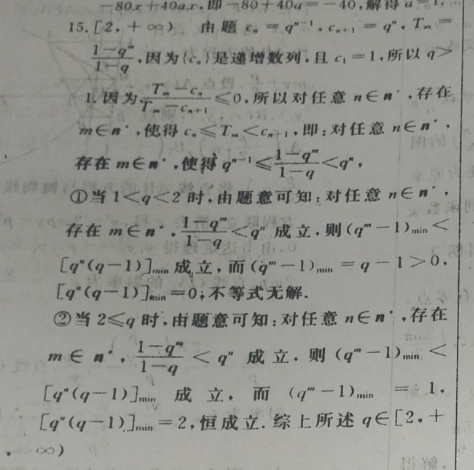 -80x+40a,x,即-80+40a=-40,解得a=1.
15.[2,+∞) 由题 cₙ=qⁿ⁻¹,cₙ₊₁=qⁿ,Tₘ=
(1-qᵐ)/(1-q),因为{cₙ}是递增数列,且c₁=1,所以q>
1.因为(Tₘ-cₙ)/(Tₘ-cₙ₊₁)≤0,所以对任意n∈n*,存在
m∈n*,使得cₙ≤Tₘ<cₙ₊₁,即:对任意n∈n*,
存在m∈n*,使得qⁿ⁻¹≤(1-qᵐ)/(1-q)<qⁿ,
①当1<q<2时,由题意可知:对任意n∈n*,
存在m∈n*,(1-qᵐ)/(1-q)<qⁿ成立,则(qᵐ-1)min<
[qⁿ(q-1)]min成立,而(qᵐ-1)min=q-1>0,
[qⁿ(q-1)]min=0,不等式无解.
②当2≤q时,由题意可知:对任意n∈n*,存在
m∈n*,(1-qᵐ)/(1-q)<qⁿ成立,则(qᵐ-1)min<
[qⁿ(q-1)]min成立,而(qᵐ-1)min=1,
[qⁿ(q-1)]min=2,恒成立.综上所述q∈[2,+
∞)